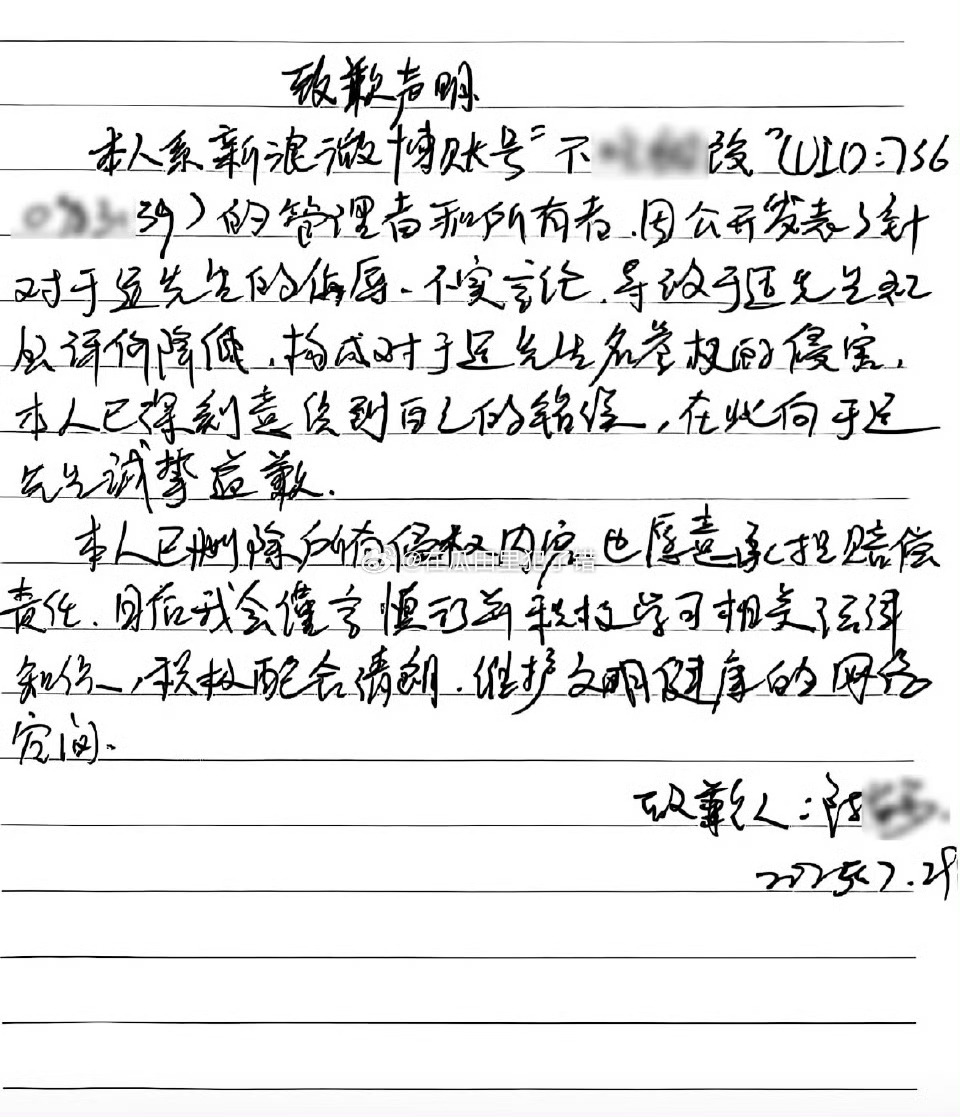 致歉声明
本人系新浪微博账号"不改"(UID:756
39)的管理者和所有者,因公开发表了针
对于适先生的侮辱、不实言论,导致于适先生社
会评价降低,构成对于适先生名誉权的侵害,
本人已深刻意识到自己的错误,在此向于适
先生诚挚道歉.
本人已删除所有侵权内容也愿意承担赔偿
@在瓜田里犯了错
责任.日后我会谨言慎行并积极学习相关法律
知识,积极配合清朗.维护文明健康的网络
空间.
致歉人:陈
2025.7.29